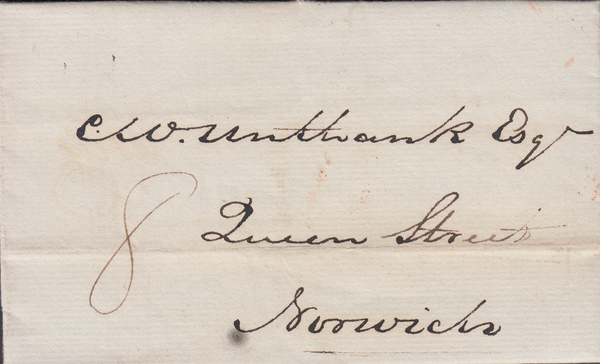 C. W. Unthank Esqr
8
Queen Street
Norwich